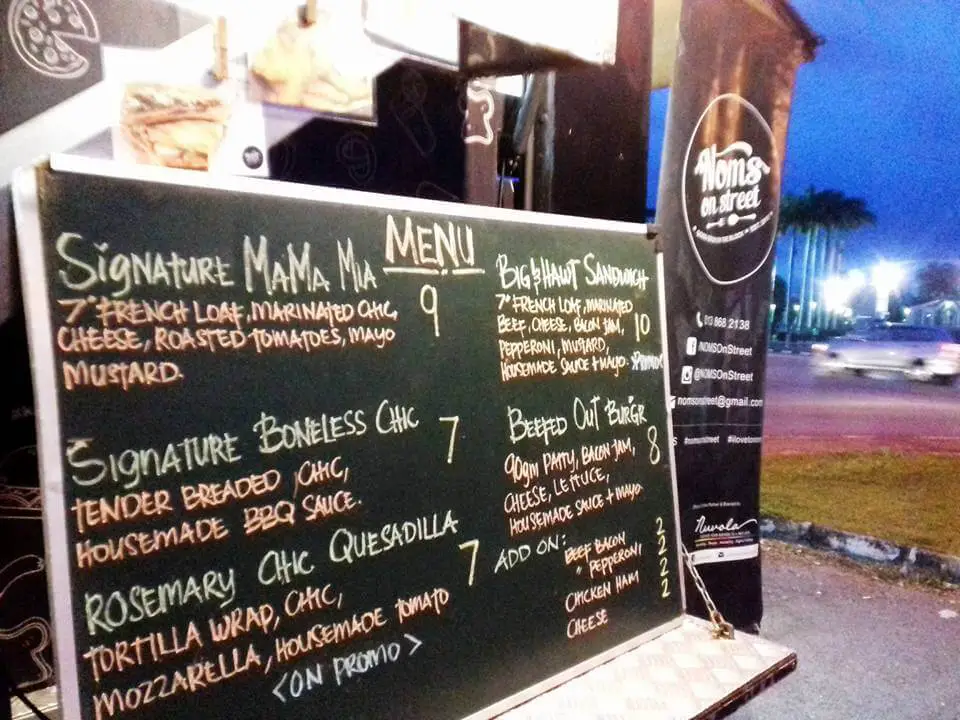 MENU
SIGNATURE MAMA MIA
7" FRENCH LOAF, MARINATED CHIC, 9
CHEESE, ROASTED TOMATOES, MAYO
MUSTARD.
SIGNATURE BONELESS CHIC 7
TENDER BREADED CHIC,
HOUSEMADE BBQ SAUCE.
ROSEMARY CHIC QUESADILLA 7
TORTILLA WRAP, CHIC,
MOZZARELLA, HOUSEMADE TOMATO
<ON PROMO>
BIG & HAWT SANDWICH
7" FRENCH LOAF, MARINATED
BEEF, CHEESE, BACON JAM, 10
PEPPERONI, MUSTARD,
HOUSEMADE SAUCE + MAYO.
BEEFED OUT BURGR
90gm PATTY, BACON JAM, 8
CHEESE, LETTUCE,
HOUSEMADE SAUCE + MAYO.
ADD ON: BEEF BACON 2
" PEPPERONI 2
CHICKEN HAM 2
CHEESE 2
Noms
on street
013 868 2138
/NOMSOnStreet
@NOMSOnStreet
nomsonstreet@gmail.com
#nomsonstreet
Nuvola